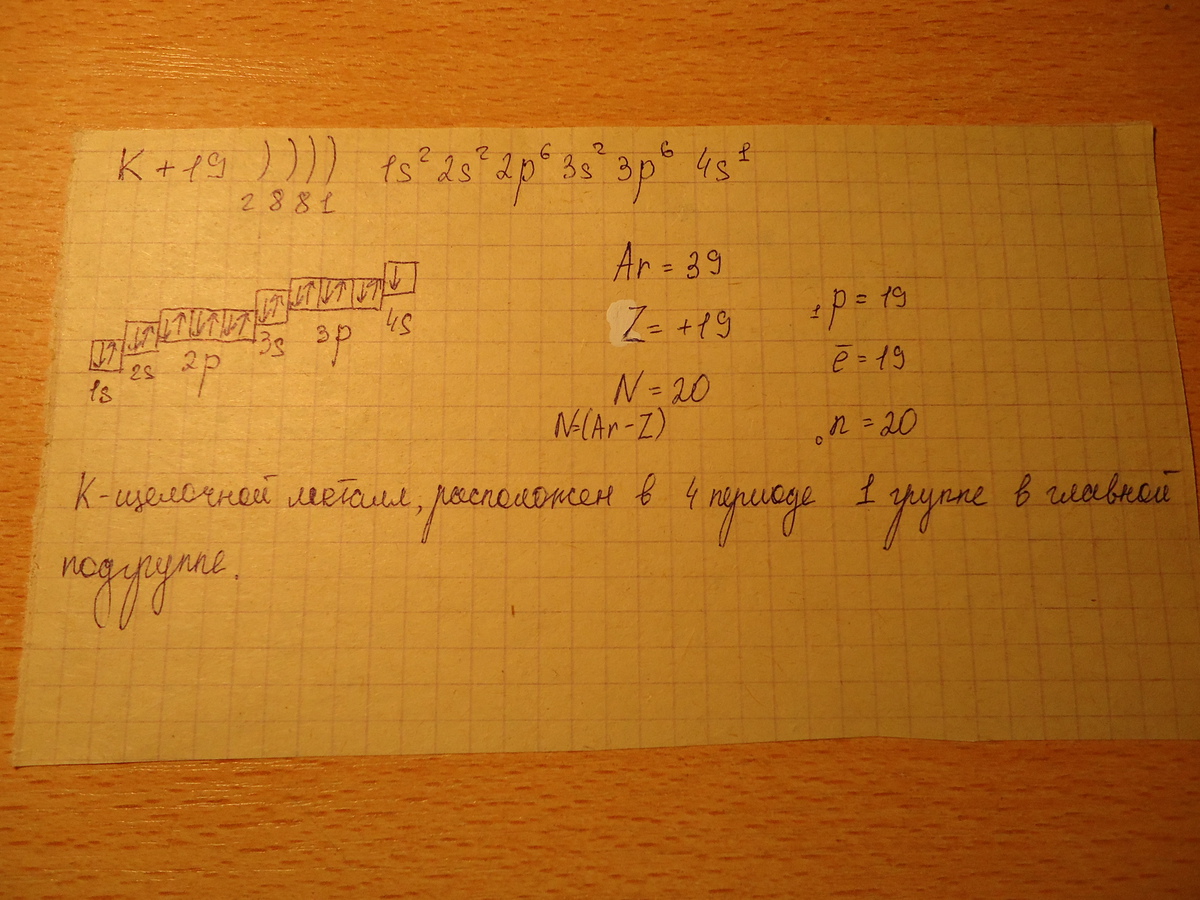 K +19 ) ) ) ) 1s² 2s² 2p⁶ 3s² 3p⁶ 4s¹
2 8 8 1
Ar = 39
₁p = 19
Z = +19
1s 2s 2p 3s 3p 4s
ē = 19
N = 20
N=(Ar-Z)
₀n = 20
K-щелочной металл, расположен в 4 периоде 1 группе в главной
подгруппе.